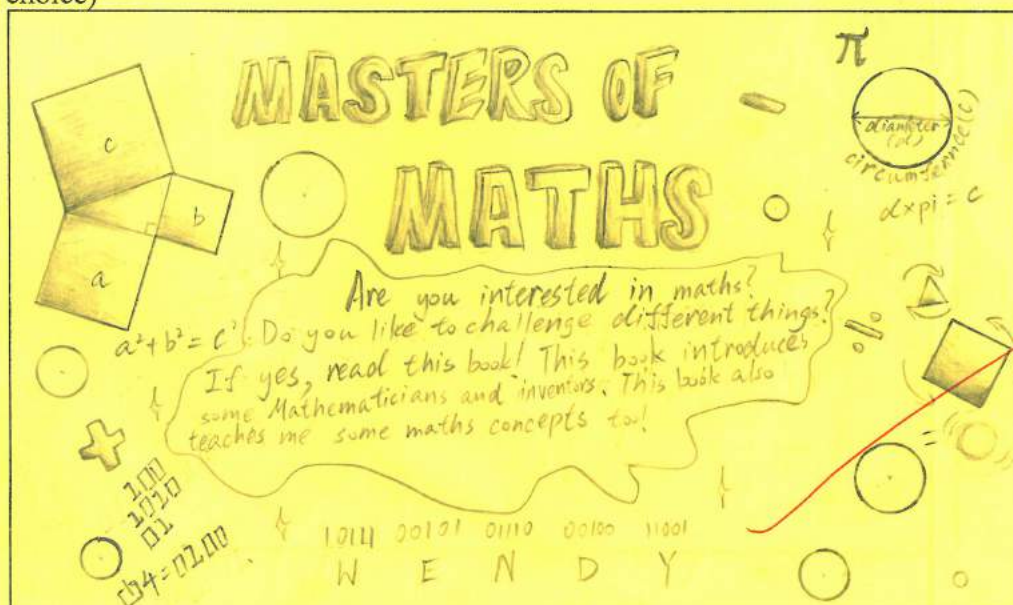 choice)
MASTERS OF
MATHS
π
diameter
(d)
circumfernce(c)
d×pi = c
c
b
a
a²+b²=c²
Are you interested in maths?
Do you like to challenge different things?
If yes, read this book! This book introduces
some Mathematicians and inventors. This book also
teaches me some maths concepts too!
100
1010
01
10111 00101 01110 00100 11001
W E N D Y